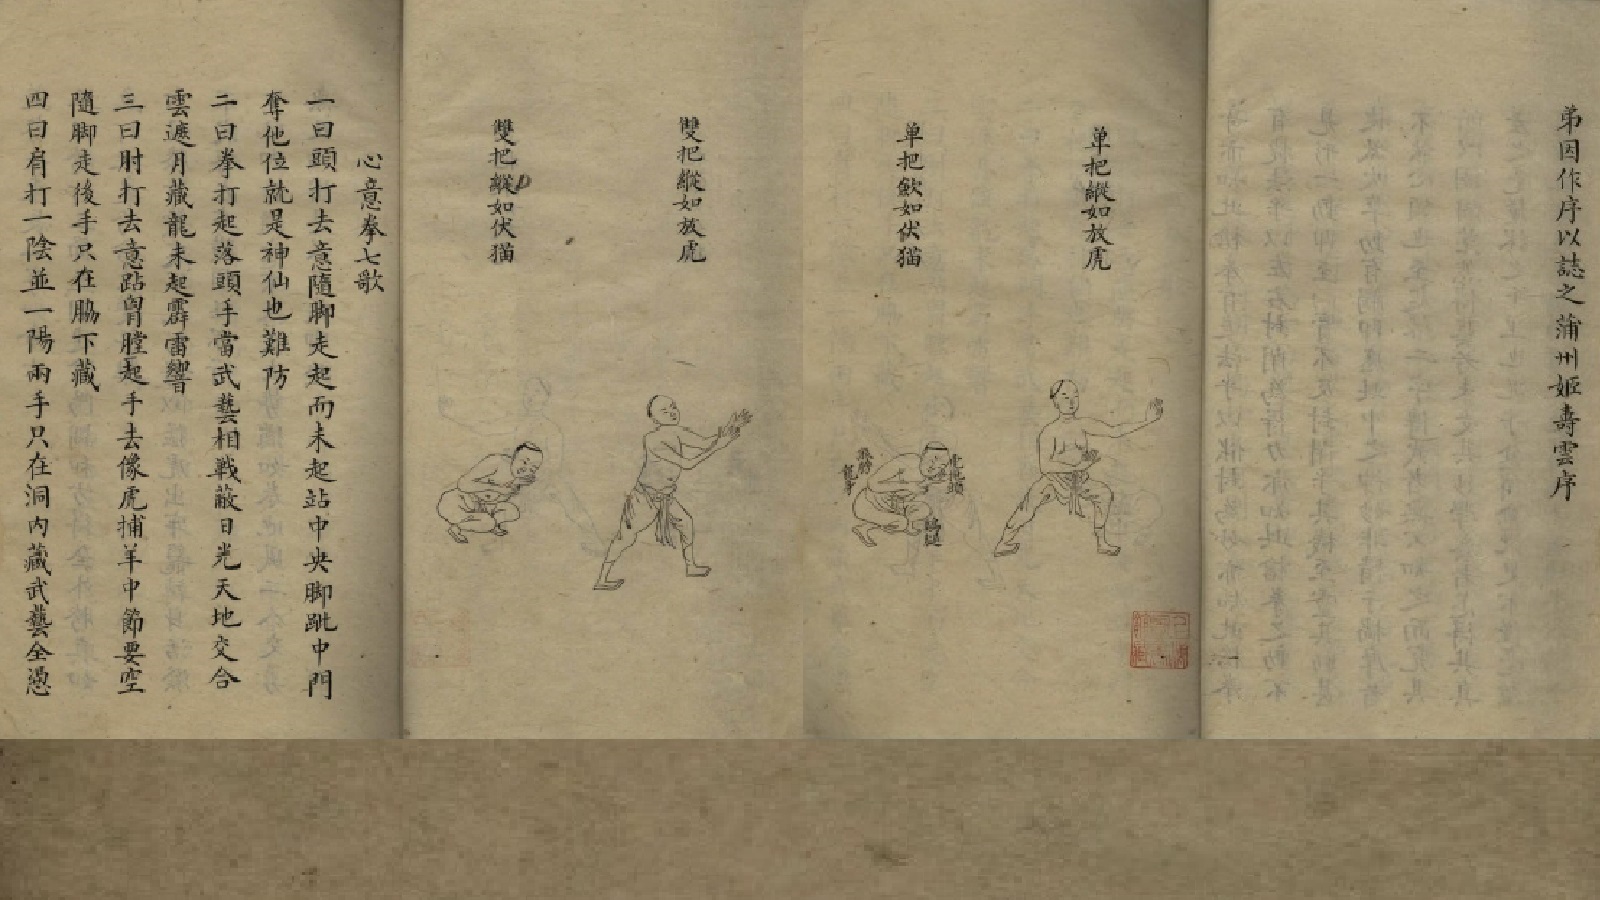 弟因作序以誌之蒲州姬壽雲序
单把縱如放虎
单把歛如伏猫
雙把縱如放虎
雙把縱如伏猫
心意拳七歌
一曰頭打去意隨脚走起而未起站中央脚跐中門
奪他位就是神仙也難防
二曰拳打起落頭手當武藝相戰蔽日光天地交合
雲遮月藏龍未起霹雷響
三曰肘打去意跕胷膛起手去像虎捕羊中節要空
隨脚走後手只在脇下藏
四曰肩打一陰並一陽兩手只在洞内藏武藝全憑